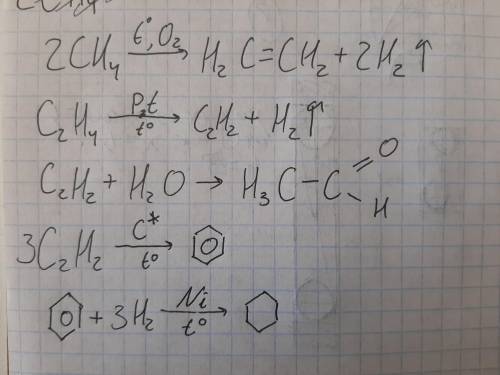 2CH₄ —t°, O₂→ H₂C=CH₂ + 2H₂↑
C₂H₄ —Pt, t°→ C₂H₂ + H₂↑
C₂H₂ + H₂O → H₃C-C=O
H
3C₂H₂ —C*, t°→
+ 3H₂ —Ni, t°→